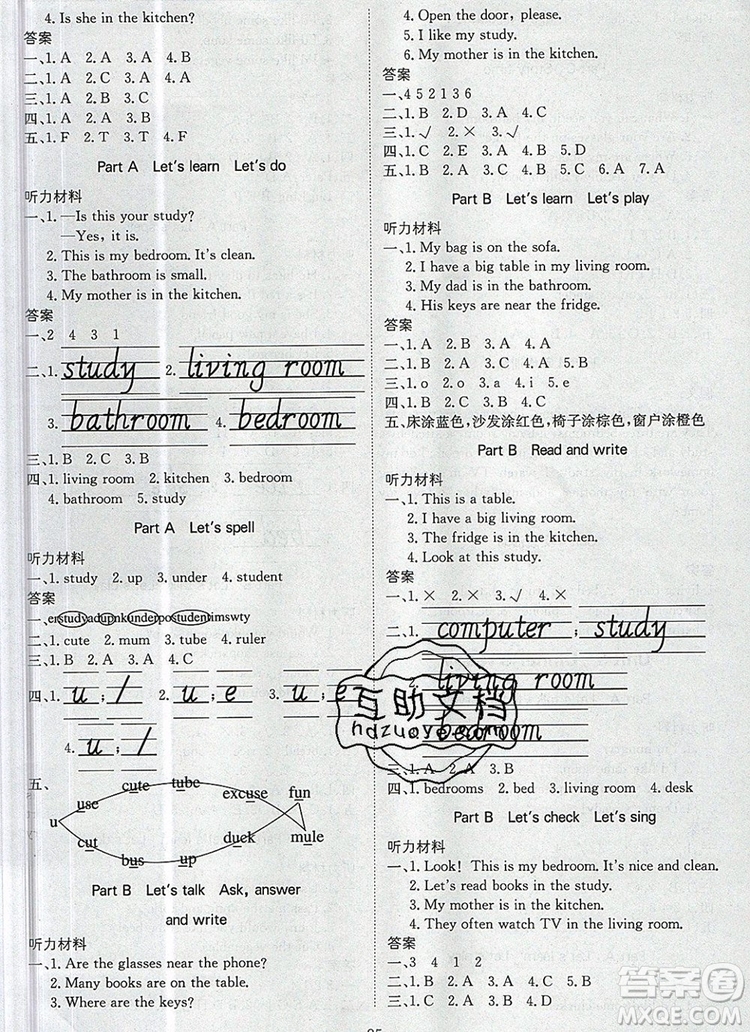 4. Is she in the kitchen?
答案
一、1. A  2. A  3. A  4. B
二、1. B  2. B  3. A  4. A
三、1. A  2. A  3. A
四、1. A  2. A  3. B
五、1. F  2. T  3. T  4. F
Part A  Let's learn  Let's do
听力材料
一、1. —Is this your study?
—Yes, it is.
2. This is my bedroom. It's clean.
3. The bathroom is small.
4. My mother is in the kitchen.
答案
一、2  4  3  1
二、1. study  2. living room
3. bathroom  4. bedroom
三、1. B  2. C  3. A
四、1. living room  2. kitchen  3. bedroom
4. bathroom  5. study
Part A  Let's spell
听力材料
一、1. study  2. up  3. under  4. student
答案
一、erstudyadupnkunderpostudentimswty
二、1. cute  2. mum  3. tube  4. ruler
三、1. B  2. A  3. A  4. B
四、1. u ; /  2. u ; e  3. u ; e
4. u ; /
五、
cute  tube
use  excuse  fun
u
cut  duck  mule
bus  up
Part B  Let's talk  Ask, answer
and write
听力材料
一、1. Are the glasses near the phone?
2. Many books are on the table.
3. Where are the keys?
4. Open the door, please.
5. I like my study.
6. My mother is in the kitchen.
答案
一、4 5 2 1 3 6
二、1. B  2. D  3. A  4. C
三、1. √  2. ×  3. √
四、1. C  2. E  3. A  4. B  5. D
五、1. B  2. A  3. C  4. B  5. C  6. A  7. A
Part B  Let's learn  Let's play
听力材料
一、1. My bag is on the sofa.
2. I have a big table in my living room.
3. My dad is in the bathroom.
4. His keys are near the fridge.
答案
一、1. A  2. A  3. B  4. B
二、1. C  2. B  3. A  4. B
三、1. o  2. o  3. a  4. i
四、1. B  2. A  3. C
五、床涂蓝色，沙发涂红色，椅子涂棕色，窗户涂橙色
Part B  Read and write
听力材料
一、1. This is a table.
2. I have a big living room.
3. The fridge is in the kitchen.
4. Look at this study.
答案
一、1. ×  2. ×  3. √  4. ×
二、1. computer ; study
2. living room
bedroom
三、1. A  2. A  3. B
四、1. bedrooms  2. bed  3. living room  4. desk
Part B  Let's check  Let's sing
听力材料
一、1. Look! This is my bedroom. It's nice and clean.
2. Let's read books in the study.
3. My mother is in the kitchen.
4. They often watch TV in the living room.
答案
一、3  4  1  2
二、1. C  2. A  3. B  4. B
三、1. C  2. B  3. A  4. B
互助文档
答案圈
MXQE.COM